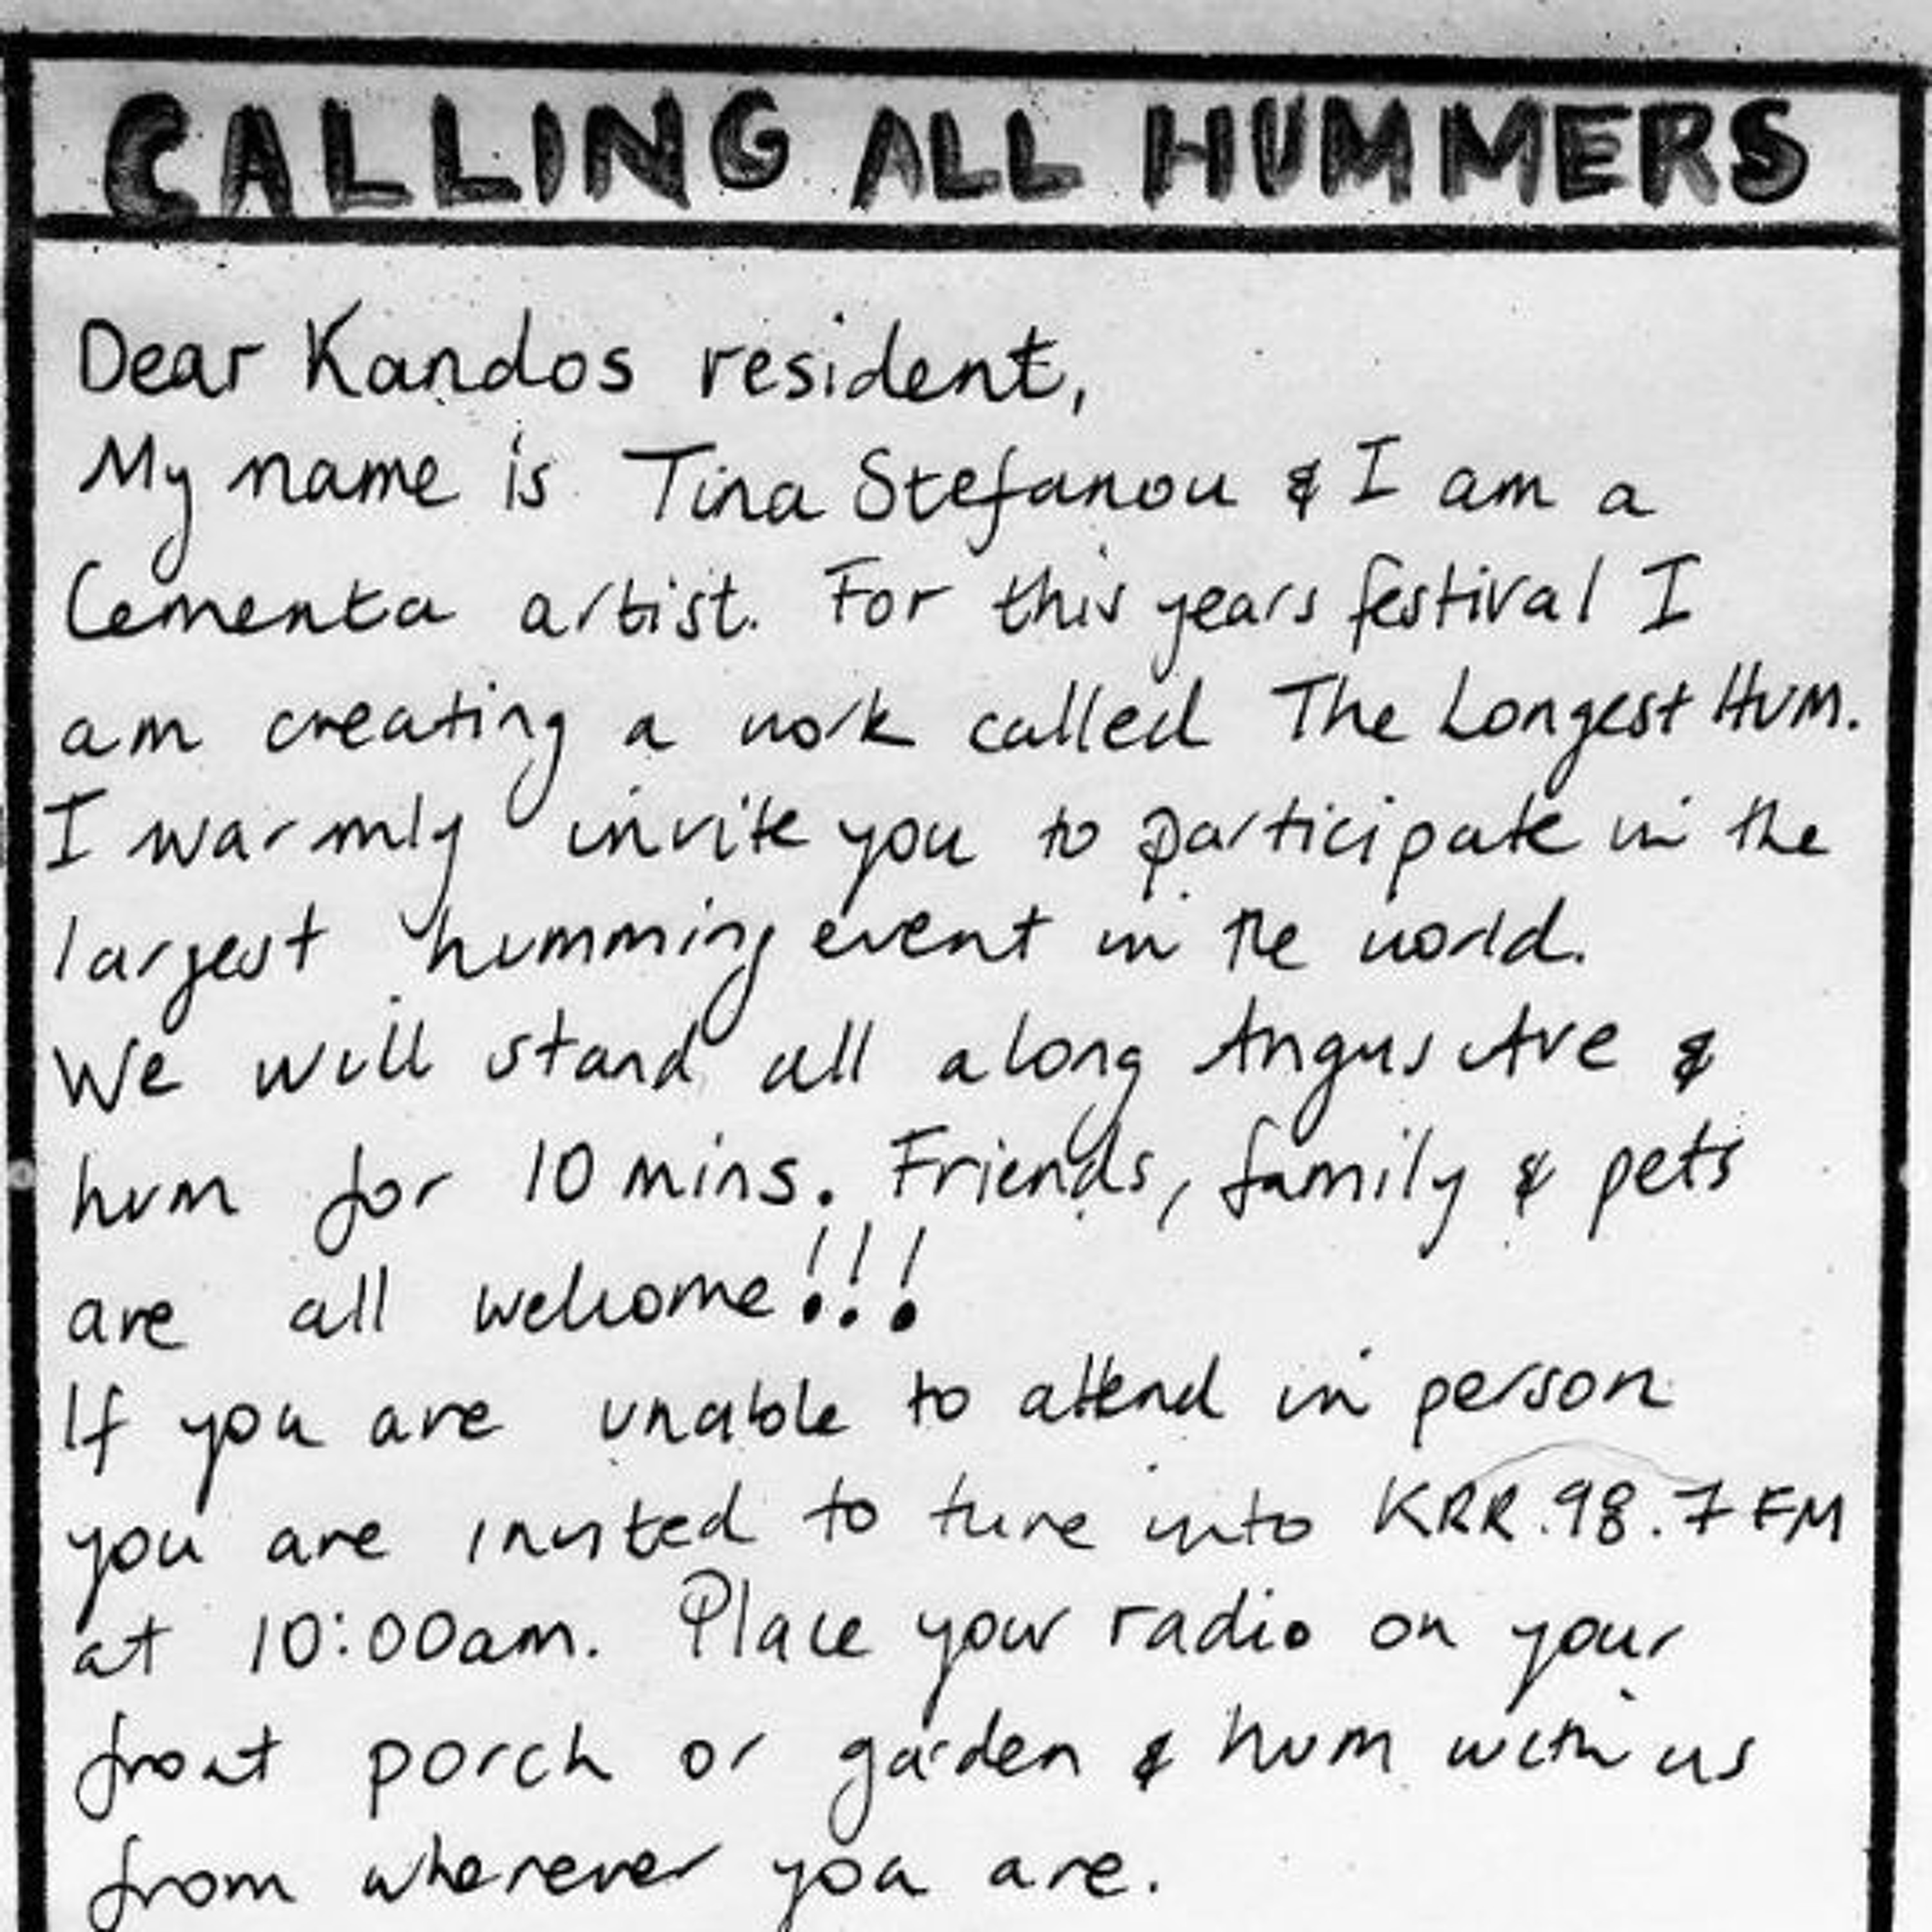 CALLING ALL HUMMERS
Dear Kandos resident,
My name is Tina Stefanou & I am a
Cementa artist. For this years festival I
am creating a work called The Longest Hum.
I warmly invite you to participate in the
largest humming event in the world.
We will stand all along Angus Ave &
hum for 10 mins. Friends, family & pets
are all welcome!!!
If you are unable to attend in person
you are invited to tune into KRR.98.7 FM
at 10:00am. Place your radio on your
front porch or garden & hum with us
from wherever you are.